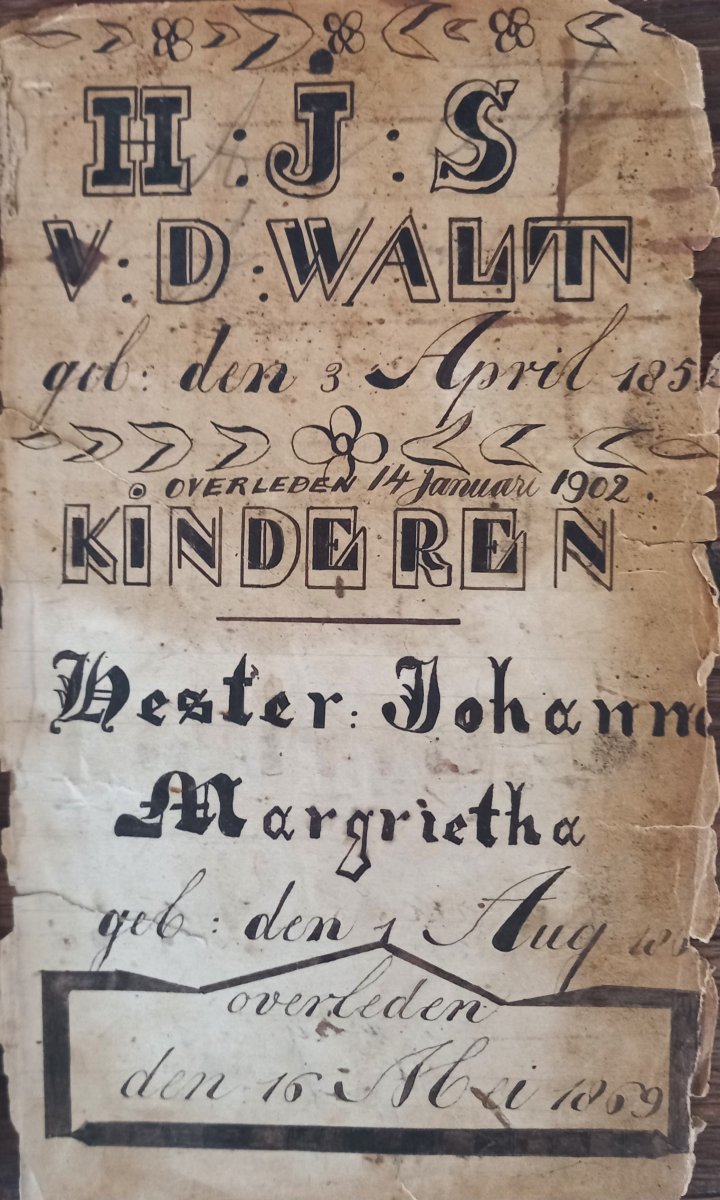 H : J : S
V : D : WALT
geb : den 3 April 185
OVERLEDEN 14 Januari 1902 .
KINDEREN
Hester : Johanna
Margrietha
geb : den 1 Aug
overleden
den 16 Mei 1869